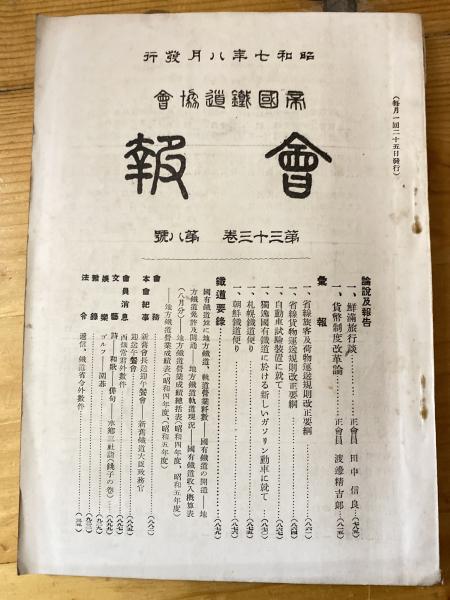 昭和七年八月發行
帝國鐵道協會
會報
第三十三卷 第八號
(每月一回二十五日發行)
論說及報告
一、鮮滿旅行談 正會員 田中信良
一、貨幣制度改革論 正會員 渡邊精吉郎
彙報
一、省線旅客及荷物運送規則改正要綱
一、省線貨物運送規則改正要綱
一、自動車試驗裝置に就て
一、獨逸國有鐵道に於ける新しいガソリン動車に就て
一、札幌鐵道便り
一、朝鮮鐵道便り
鐵道要錄
國有鐵道並に地方鐵道、軌道營業粁數——國有鐵道の開通——地
方鐵道免許及開通——地方鐵道軌道現況——國有鐵道收入概算表
(八月分) 地方鐵道營業成績總括表(昭和四年度、昭和五年度)
——地方鐵道營業成績表(昭和四年度、昭和五年度)
會務
本會紀事 新舊會長送迎午餐會——新舊鐵道大臣政務官
送迎午餐會
會員消息
文藝 詩——和歌——俳句——水鄉三社詣(銚子の卷)
娛樂 ゴルフ——圍碁
雜錄
法令 遞信、鐵道省令外數件